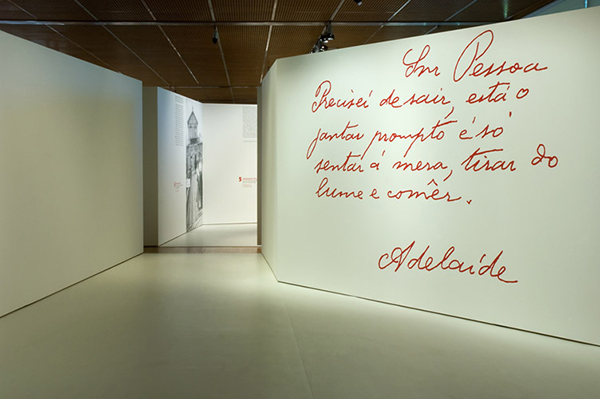 Snr Pessoa
Precisei de sair, está o
jantar prompto é só
sentar á mesa, tirar do
lume e comêr.
Adelaide